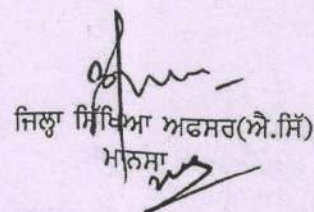 ਜਿਲ੍ਹਾ ਸਿੱਖਿਆ ਅਫਸਰ(ਐ.ਸਿੱ)
ਮਾਨਸਾ